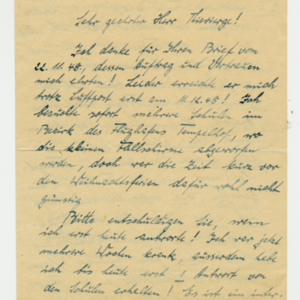 Sehr geehrter Herr Thierwege!
Ich danke für Ihren Brief vom
22.11.48, dessen Auftrag und Vertrauen
mich ehrten! Leider erreichte er mich
trotz Luftpost erst am 11.12.48! Ich
besuchte sofort mehrere Schulen im
Bezirk des Flughafens Tempelhof, wo
die kleinen Fallschirme abgeworfen
wurden, doch war die Zeit kurz vor
den Weihnachtsferien dafür wohl nicht
günstig
Bitte entschuldigen Sie, wenn
ich erst heute antworte! Ich war jetzt
mehrere Wochen krank, ausserdem habe
ich bis heute erst 1 Antwort von
den Schulen erhalten! Es ist im